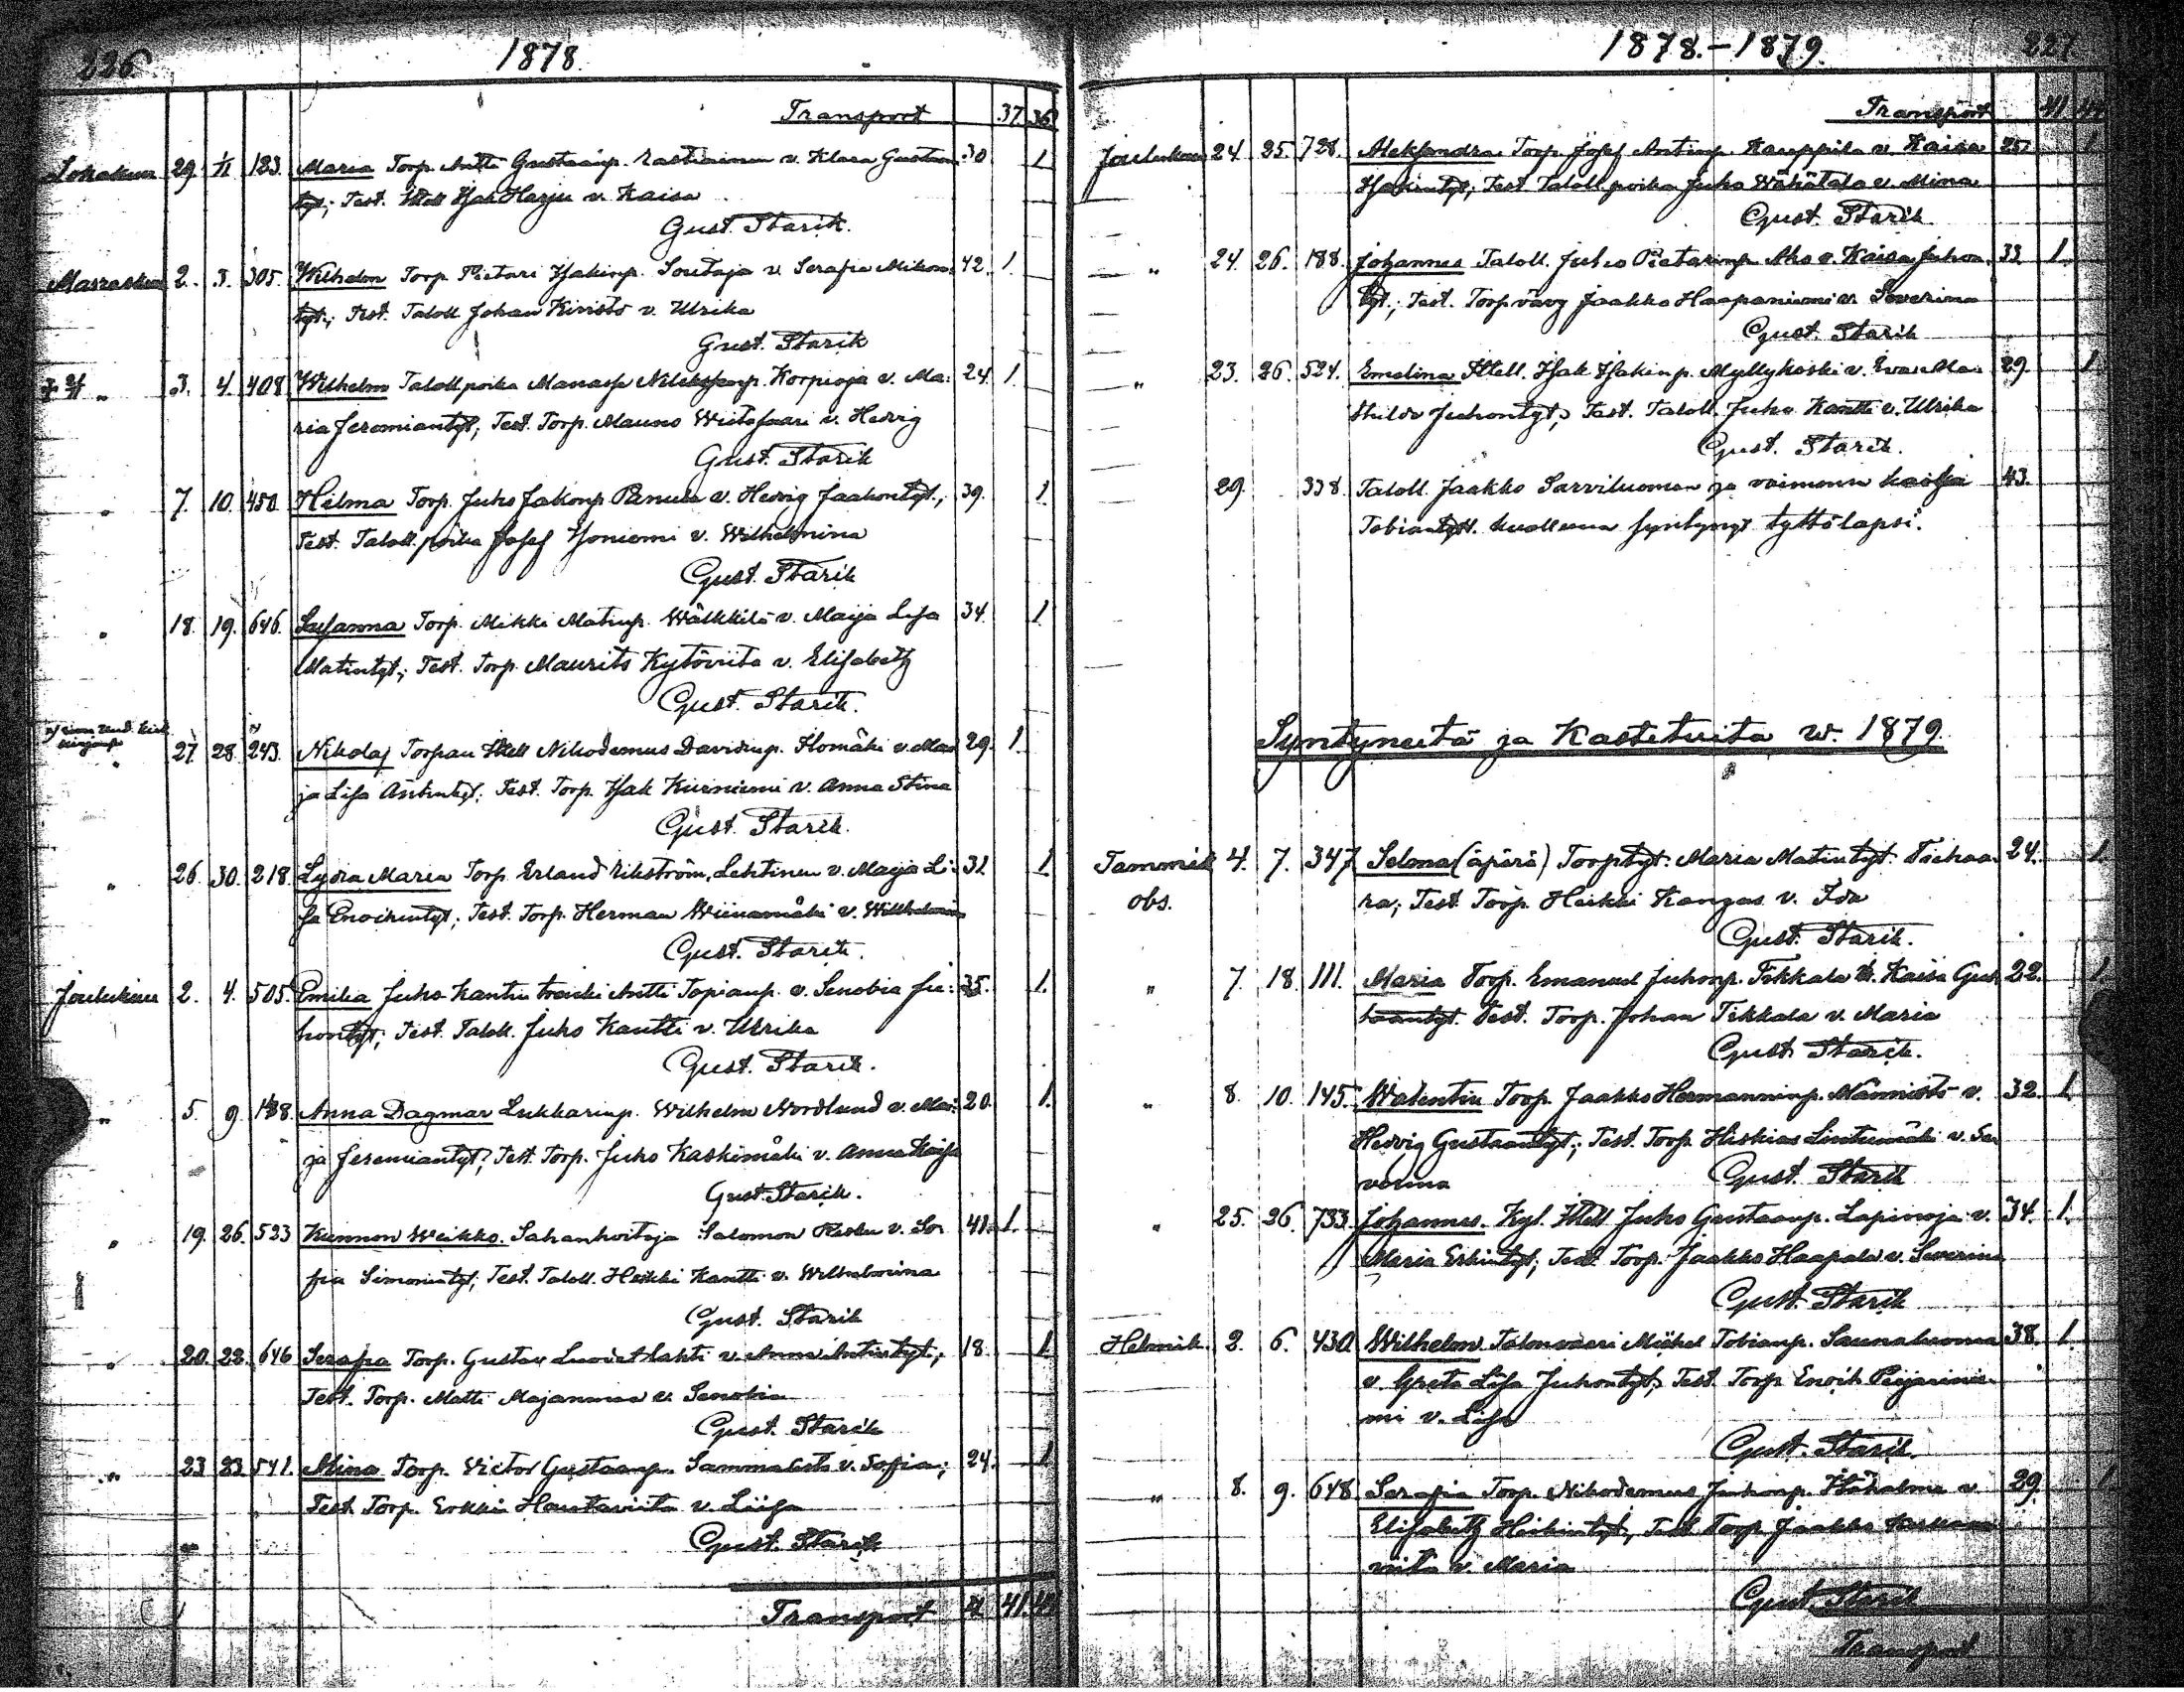 226.
1878.
Transport 37. 36
Lokakuu 29 1/11 123. Maria Torp. Antti Gustaanp. Rastiainen v. Klara Gustaan 30. 1
tyt.; Test. Itell. Isak Harju v. Kaisa
Gust. Starik.
Marraskuu 2. 3. 305. Wilhelm Torp. Pietari Isakinp. Soutaja v. Serafia Mikon 42. 1.
tyt.; Test. Taloll. Johan Kivistö v. Ulrika
Gust. Starik
" 3. 4. 408 Wilhelm Talollpoika Manasse Korpioja v. Ma: 24. 1.
ria Jeremiantyt; Test. Torp. Mauno Wiitasaari v. Hedvig
Gust. Starik
" 7. 10. 450. Hilma Torp. Juho Jakonp. Panula v. Hedvig Jaakontyt., 39. 1
Test. Taloll. poika Josef Isoniemi v. Wilhelmina
Gust. Starik
" 18. 19. 646. Susanna Torp. Mikki Matinp. Wälkkilä v. Maija Lisa 34 1
Matintyt; Test. Torp. Maurits Kytöviita v. Elisabeth
Gust. Starik.
" 27. 28. 243. Nikolaj Torpan Itell Nikodemus Davidinp. Ilomäki v. Mar 29. 1.
ja Lisa Antintyt. Test. Torp. Isak Kiiniemi v. Anna Stina
Gust. Starik.
" 26. 30. 218. Lydia Maria Torp. Erland Erkström, Lehtinen v. Maija Li: 31 1
sa Enokintyt; Test. Torp. Herman Wiinamäki v. Wilhelmiina
Gust. Starik.
Joulukuu 2. 4. 505. Emilia Juho Kantin trenki Antti Topianp. v. Senobia Ju: 35. 1.
hontyt; Test. Taloll. Juho Kantti v. Ulrika
Gust. Starik.
" 5. 9. 188. Anna Dagmar Lukkarinp. Wilhelm Nordlund v. Mar: 20. 1.
ja Jeremiantyt; Test. Torp. Juho Kaskimäki v. Anna Kaisa
Gust. Starik.
" 19. 26. 523 Kunnon Weikko. Sahanhoitaja Salomon v. So: 41. 1.
fia Simonintyt; Test. Taloll. Heikki Kantti v. Wilhelmina
Gust. Starik
" 20. 22. 646 Serafia Torp. Gustav Luodet lahti v. Anna Antintyt; 18. 1
Test. Torp. Matti Majanmaa v. Senobia
Gust. Starik
" 23 23 541. Mina Torp. Victor Gustaanp. Sammalisto v. Sofia; 24. 1
Test. Torp. Erkki Hautaviita v. Liisa
Gust. Starik
Transport 41.
1878.-1879. 227.
Transport 41
Joulukuu 24. 25. 728. Aleksandra Torp. Josef Antinp. Kauppila v. Kaisa 25. 1
Isakintyt; Test. Taloll. poika Juho Wähätalo v. Mina
Gust. Starik.
" 24. 26. 188. Johannes Taloll. Juho Pietarinp. Aho v. Kaisa Juhon 33. 1.
tyt.; Test. Torp. vävy Jaakko Haapaniemi v. Severina
Gust. Starik
" 23. 26. 524. Emelina Itell. Isak Isakinp. Myllykoski v. Eva Ma: 29. 1
thilda Juhontyt; Test. Taloll. Juho Kantti v. Ulrika
Gust. Starik.
29. 338 Taloll. Jaakko Sarviluoman ja vaimonsa Kaisa 43.
Tobiantytt. kuolleena syntynyt tyttölapsi.
Syntyneitä ja Kastetuita w. 1879.
Tammik. 4. 7. 347 Selma (äpärä) Torp.tyt. Maria Matintyt. 24. 1.
obs. ra; Test. Torp. Heikki Kangas v. Ida
Gust. Starik.
" 7. 18. 111. Maria Torp. Emanuel Juhonp. Tikkala v. Kaisa Gus 22. 1
taantyt. Test. Torp. Johan Tikkala v. Maria
Gust. Starik.
" 8. 10. 145. Walentin Torp. Jaakko Hermanninp. Männistö v. 32. 1.
Hedvig Gustaantyt; Test. Torp. Hiskias Lintumäki v. Se
verina
Gust. Starik
" 25. 26. 733. Johannes. Kyl. Itell Juho Gustaanp. Lapinoja v. 34. 1.
Maria Erkintyt; Test. Torp. Jaakko Haapala v. Severina
Gust. Starik
Helmik. 2. 6. 430. Wilhelm Talonvaari Mikkel Tobianp. Saunaluoma 38. 1.
v. Greta Lisa Juhontyt; Test. Torp. Enoik Peijarinie
mi v. Lisa
Gust. Starik.
" 8. 9. 648 Serafia Torp. Nikodemus Juhonp. v. 29. 1
Elisabeth Heikintyt; Test. Torp. Jaakko
viita v. Maria
Gust. Starik
Transport